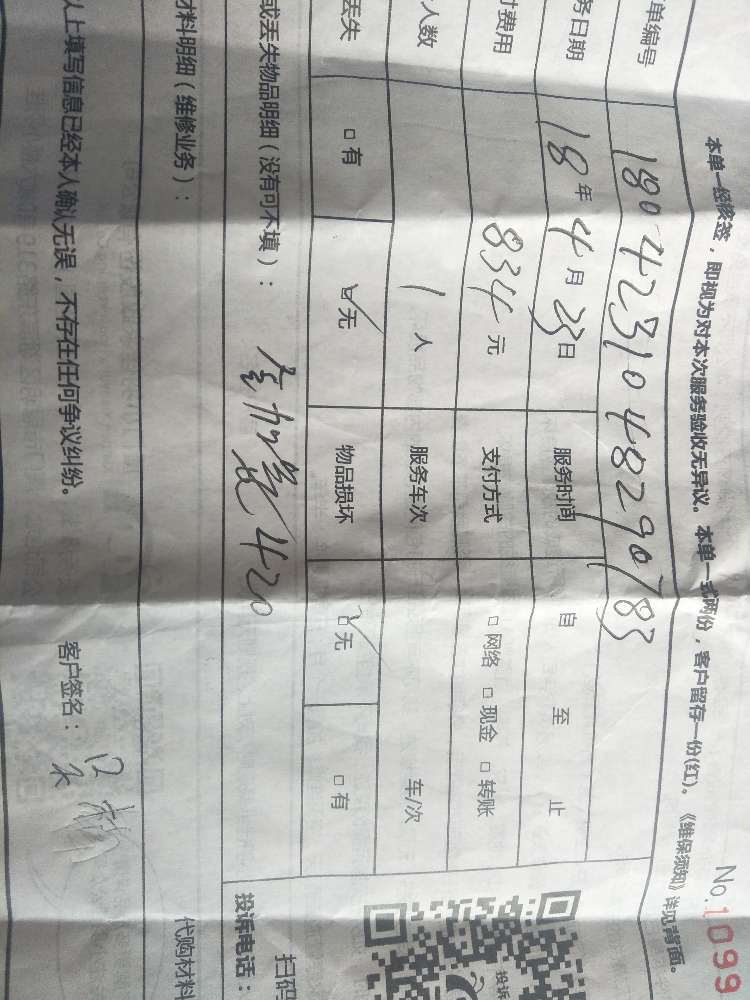 本单一经修签，即视为对本次服务验收无异议。本单一式两份，客户留存一份(红)。《维保须知》详见背面。
No.1099
单编号 180423104829078
务日期 18年4月23日 服务时间 自 至 止
付费用 834元 支付方式 □网络 □现金 □转账
人数 1人 服务车次 车/次
丢失 □有 ☑无 物品损坏 ☑无 □有
或丢失物品明细（没有可不填）： 420
材料明细（维修业务）：
代购材料
以上填写信息已经本人确认无误，不存在任何争议纠纷。
客户签名：
投诉
扫码
投诉电话：